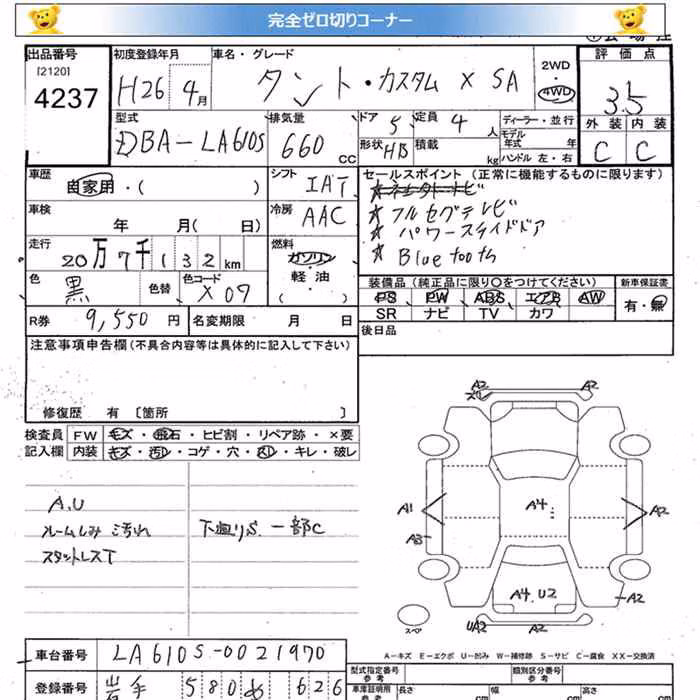 完全ゼロ切りコーナー
出品番号 初度登録年月 車名・グレード 2WD ・ 4WD 評価点
[2120]
4237 H26 4月 タント・カスタム X SA 3.5
外装 内装
C C
型式 排気量 ドア 5 定員 4 人 ディーラー・並行
DBA-LA610S 660 CC 形状 HB 積載 kg モデル年式 年
ハンドル 左・右
車歴 自家用・( ) シフト IAT セールスポイント (正常に機能するものに限ります)
車検 年 月( 日) 冷房 AAC ★フルセグテレビ
★パワースライドドア
★Bluetooth
走行 20万7千132km 燃料 ガソリン・軽油 ( )
色 黒 色替 色コード X07 装備品 (純正品に限り○をつけてください) 新車保証書
PS PW ABS エアB AW 有・無
SR ナビ TV カワ
R券 9,550円 名変期限 月 日 後日品
注意事項申告欄 (不具合内容等は具体的に記入して下さい)
修復歴 有 〔箇所 〕
検査員 FW キズ・飛石・ヒビ割・リペア跡・×要
記入欄 内装 キズ・汚レ・コゲ・穴・スレ・キレ・破レ
A.U
ルームしみ 汚れ 下廻りS.一部C
スタットレスT
A2 A2
ズリ
A1 A4 A2
A3
A4.U2 A2
スペ UA2 A2
A-キズ E-エクボ U-凹み W-補修跡 S-サビ C-腐食 XX-交換済
車台番号 LA610S-0021970
登録番号 岩手 580 626
型式指定番号 参考 類別区分番号 参考
車庫証明用 参考 長さ cm 幅 cm 高さ cm